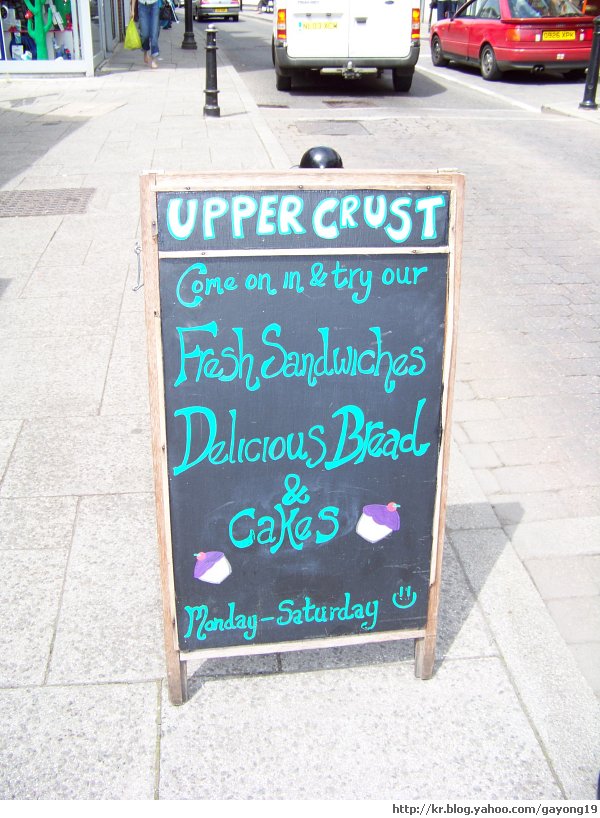 UPPER CRUST
Come on in & try our
Fresh Sandwiches
Delicious Bread
&
Cakes
Monday - Saturday
http://kr.blog.yahoo.com/gayong19